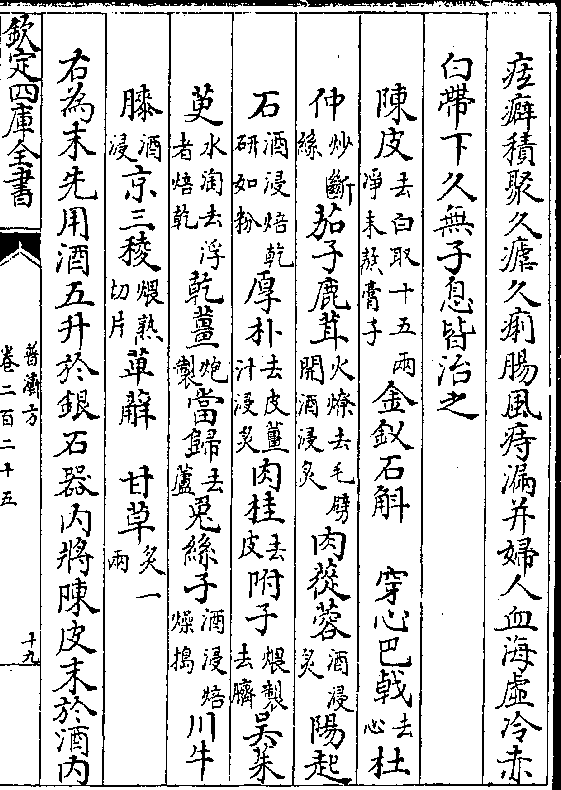 疰癖積聚久瘧久痢腸風痔漏并婦人血海虛冷赤
白帶下久無子息皆治之
陳皮去白取十五兩淨末熬膏子 金釵石斛 穿心巴戟去心 杜
仲炒斷絲 茄子鹿茸火燎去毛劈開酒浸炙 肉蓯蓉酒浸炙 陽起
石酒浸焙乾研如粉 厚朴去皮薑汁浸炙 肉桂去皮 附子煨製去臍 吳茱
萸水淘去浮者焙乾 乾薑炮製 當歸去蘆 兎絲子酒浸焙燥搗 川牛
膝酒浸 京三稜煨熟切片 萆薢 甘草炙一兩
右為末先用酒五升於銀石器内將陳皮末於酒内
欽定四庫全書
普濟方
卷二百二十五
十九